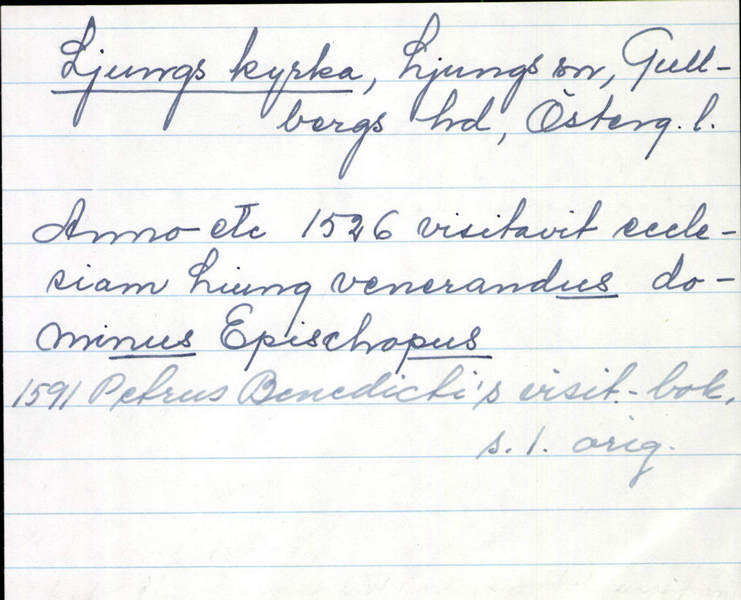 Ljungs kyrka, Ljungs sn, Gull-
bergs hd, Österg. l.
Anno etc 1526 visitavit eccle-
siam Liung venerandus do-
minus Epischopus
1591 Petrus Benedicti's visit.-bok,
s. 1. orig.